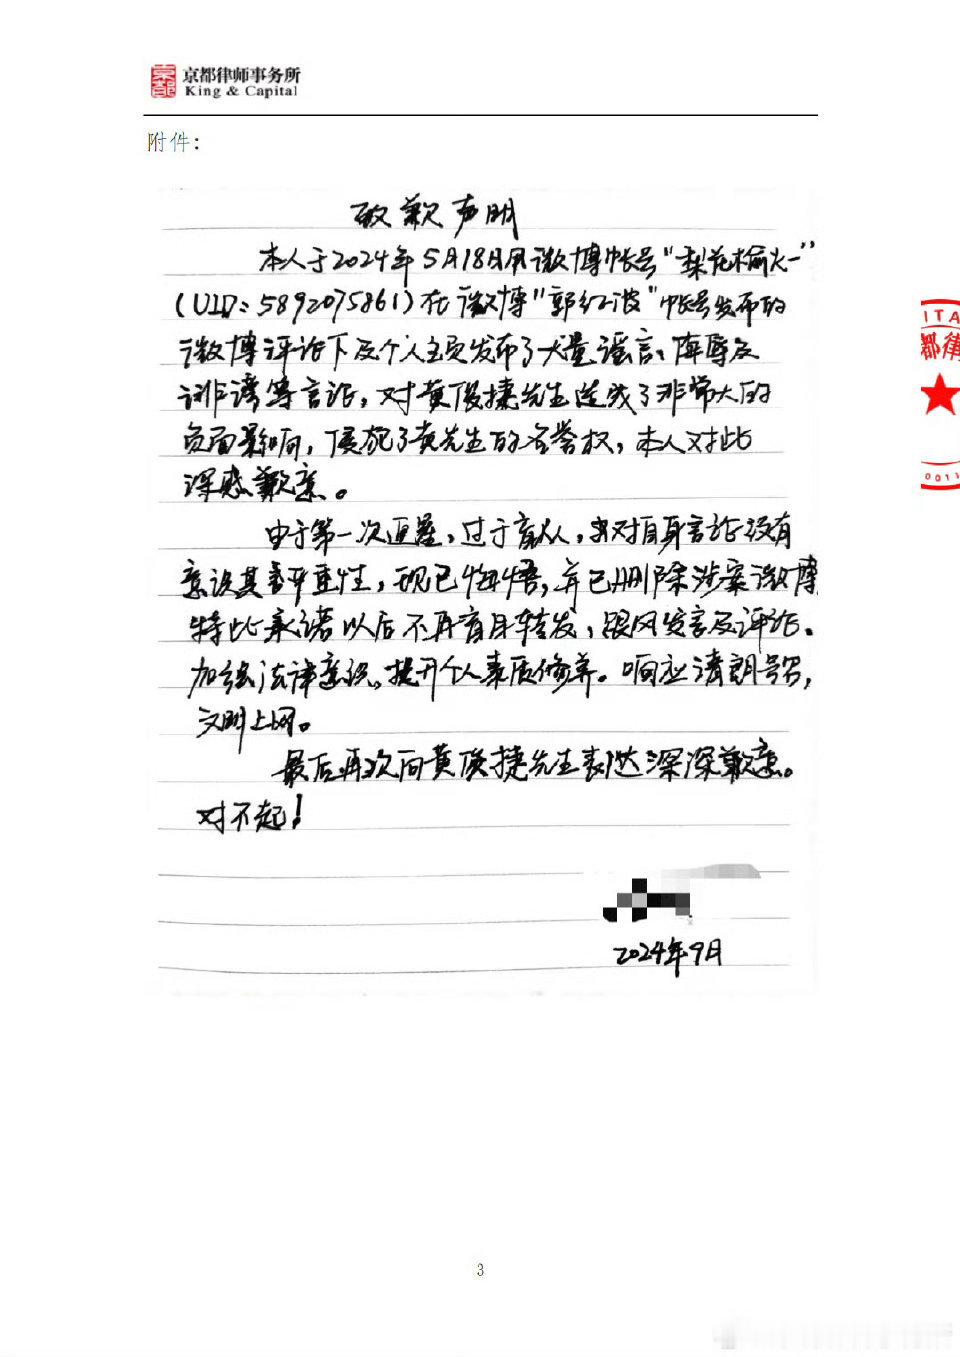 京都律师事务所
King & Capital
附件：
致歉声明
本人于2024年5月18日用微博帐号“梨花榆火一”
(UID：5892075861)在微博“郭红波”帐号发布的
微博评论下及个人主页发布了大量谣言、侮辱及
诽谤等言论，对黄俊捷先生造成了非常大的
负面影响，侵犯了黄先生的名誉权，本人对此
深感歉意。
由于第一次追星，过于盲从，未对自身言论没有
意识其严重性，现已悔悟，并已删除涉案微博
特此承诺以后不再盲目转发，跟风发言及评论。
加强法律意识，提升个人素质修养。响应清朗号召，
文明上网。
最后再次向黄俊捷先生表达深深歉意。
对不起！
2024年9月
ITA
都律
0013
3